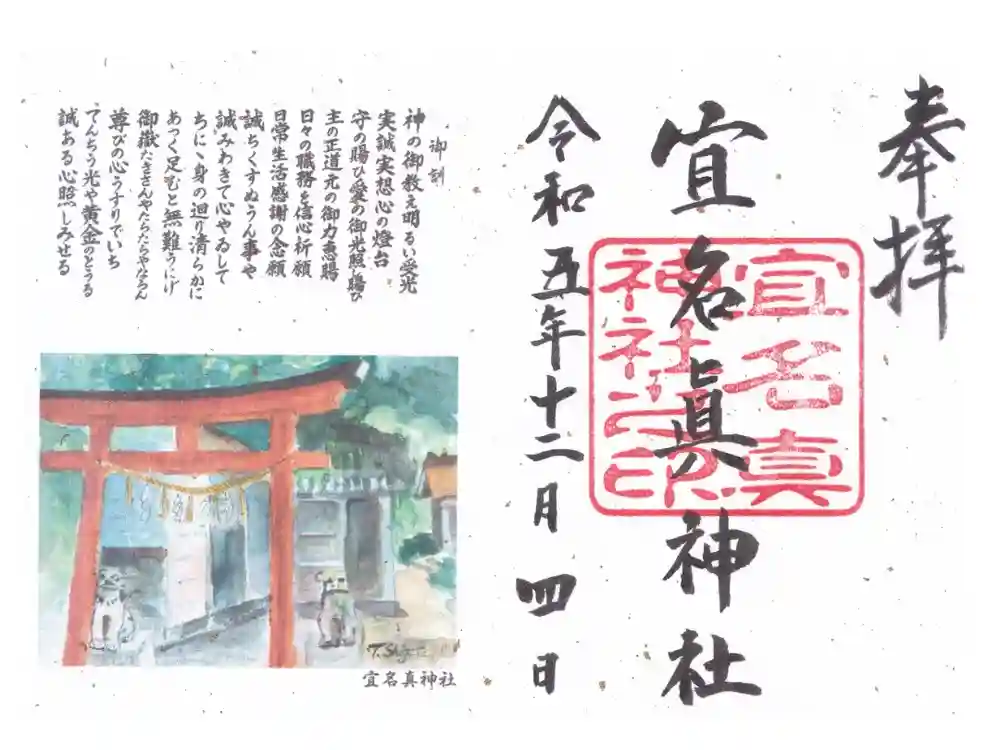 奉拝
宜名眞神社
宜名真
神社之印
令和五年十二月四日
御訓
神の御教え明るい受光
実誠実想心の燈台
守の賜ひ愛の御光照し賜ひ
主の正道元の御力恵賜
日々の職務を信心祈願
日常生活感謝の念願
誠ちくすぬうん事や
誠みわきて心やゐして
ちにヽ身の廻り清らかに
あっく足むと無難うにげ
御嶽たきさんやたらたらやならん
尊びの心うすりでいち
てんちう光や黄金のとうる
誠ある心照しみせる
宜名真神社